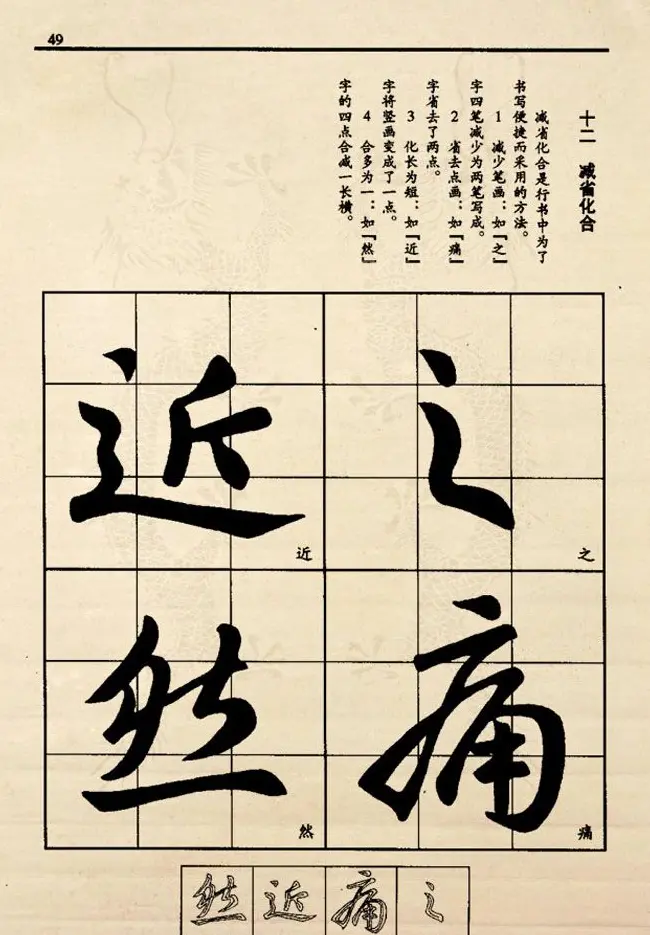 49
十二 减省化合
减省化合是行书中为了
书写便捷而采用的方法。
1 减少笔画：如「之」
字四笔减少为两笔写成。
2 省去点画：如「痛」
字省去了两点。
3 化长为短：如「近」
字将竖画变成了一点。
4 合多为一：如「然」
字的四点合减一长横。
之
之
痛
痛
近
近
然
然
之
痛
近
然